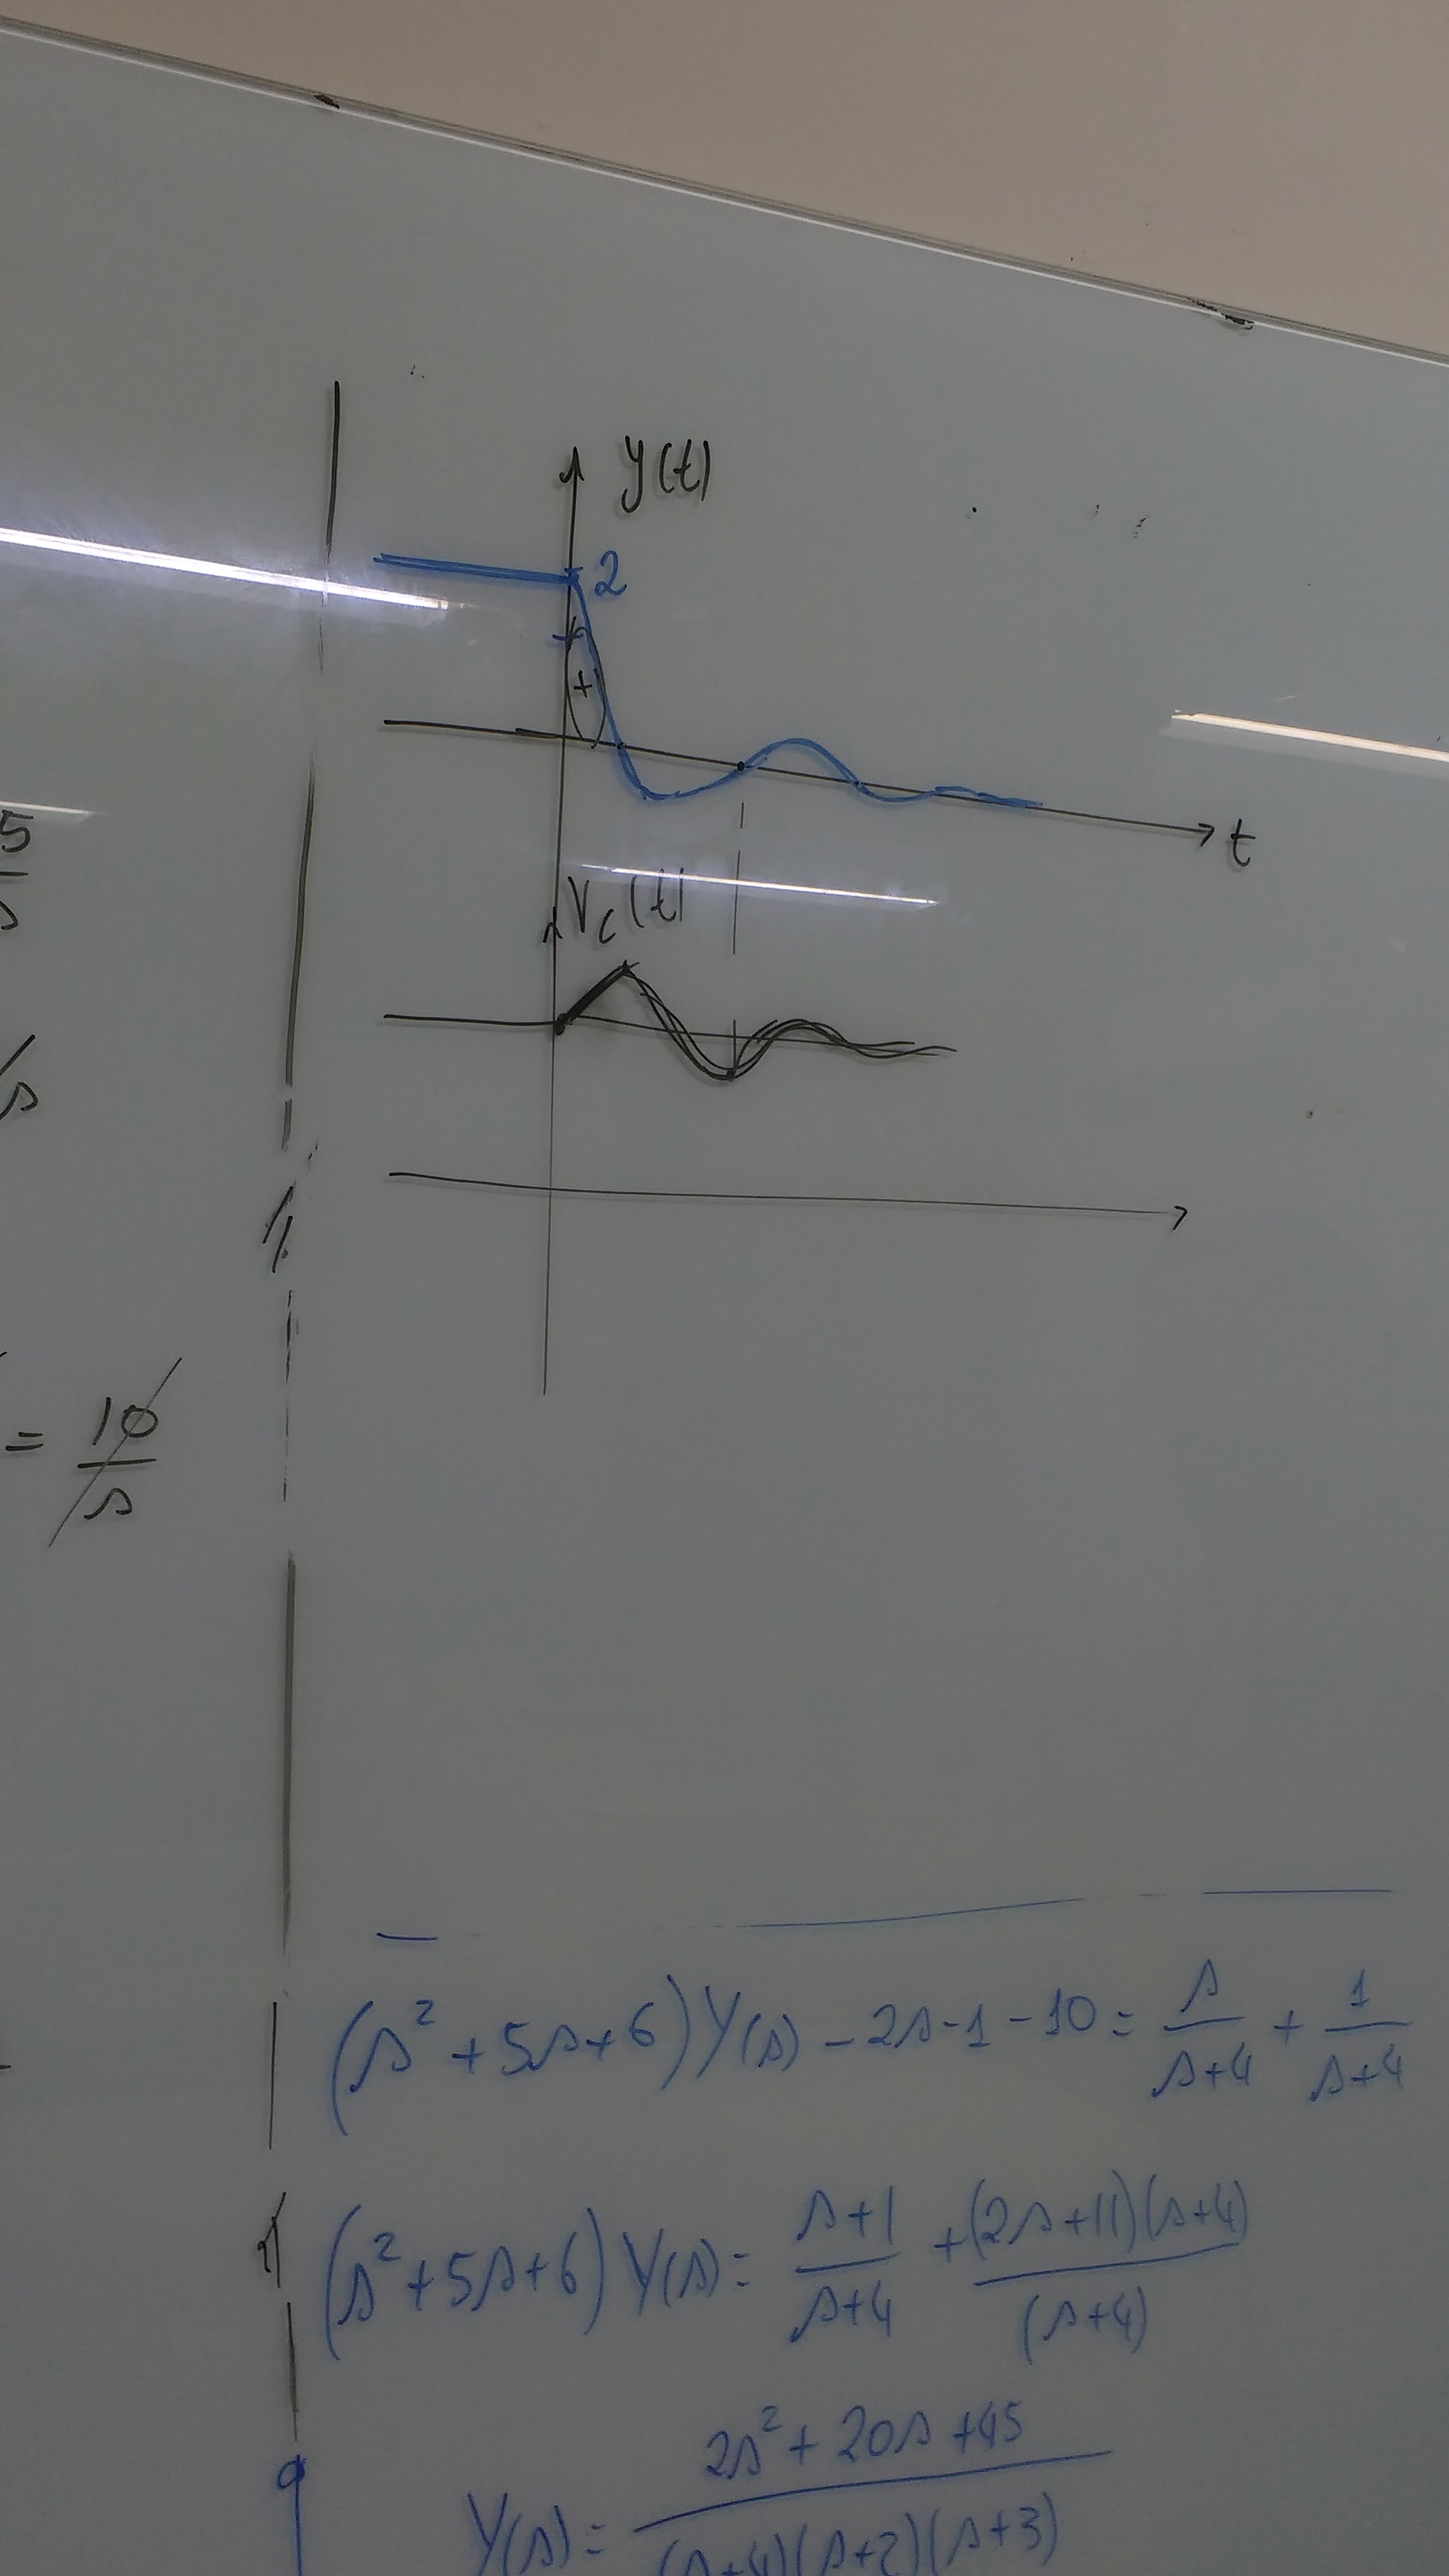 y(t)
2
+
t
5
s
V_c(t)
/s
= 10/s
(s² + 5s + 6) Y(s) - 2s - 1 - 10 = s/(s+4) + 1/(s+4)
(s² + 5s + 6) Y(s) = (s+1)/(s+4) + (2s+11)(s+4)/(s+4)
Y(s) = (2s² + 20s + 45)/((s+4)(s+2)(s+3))